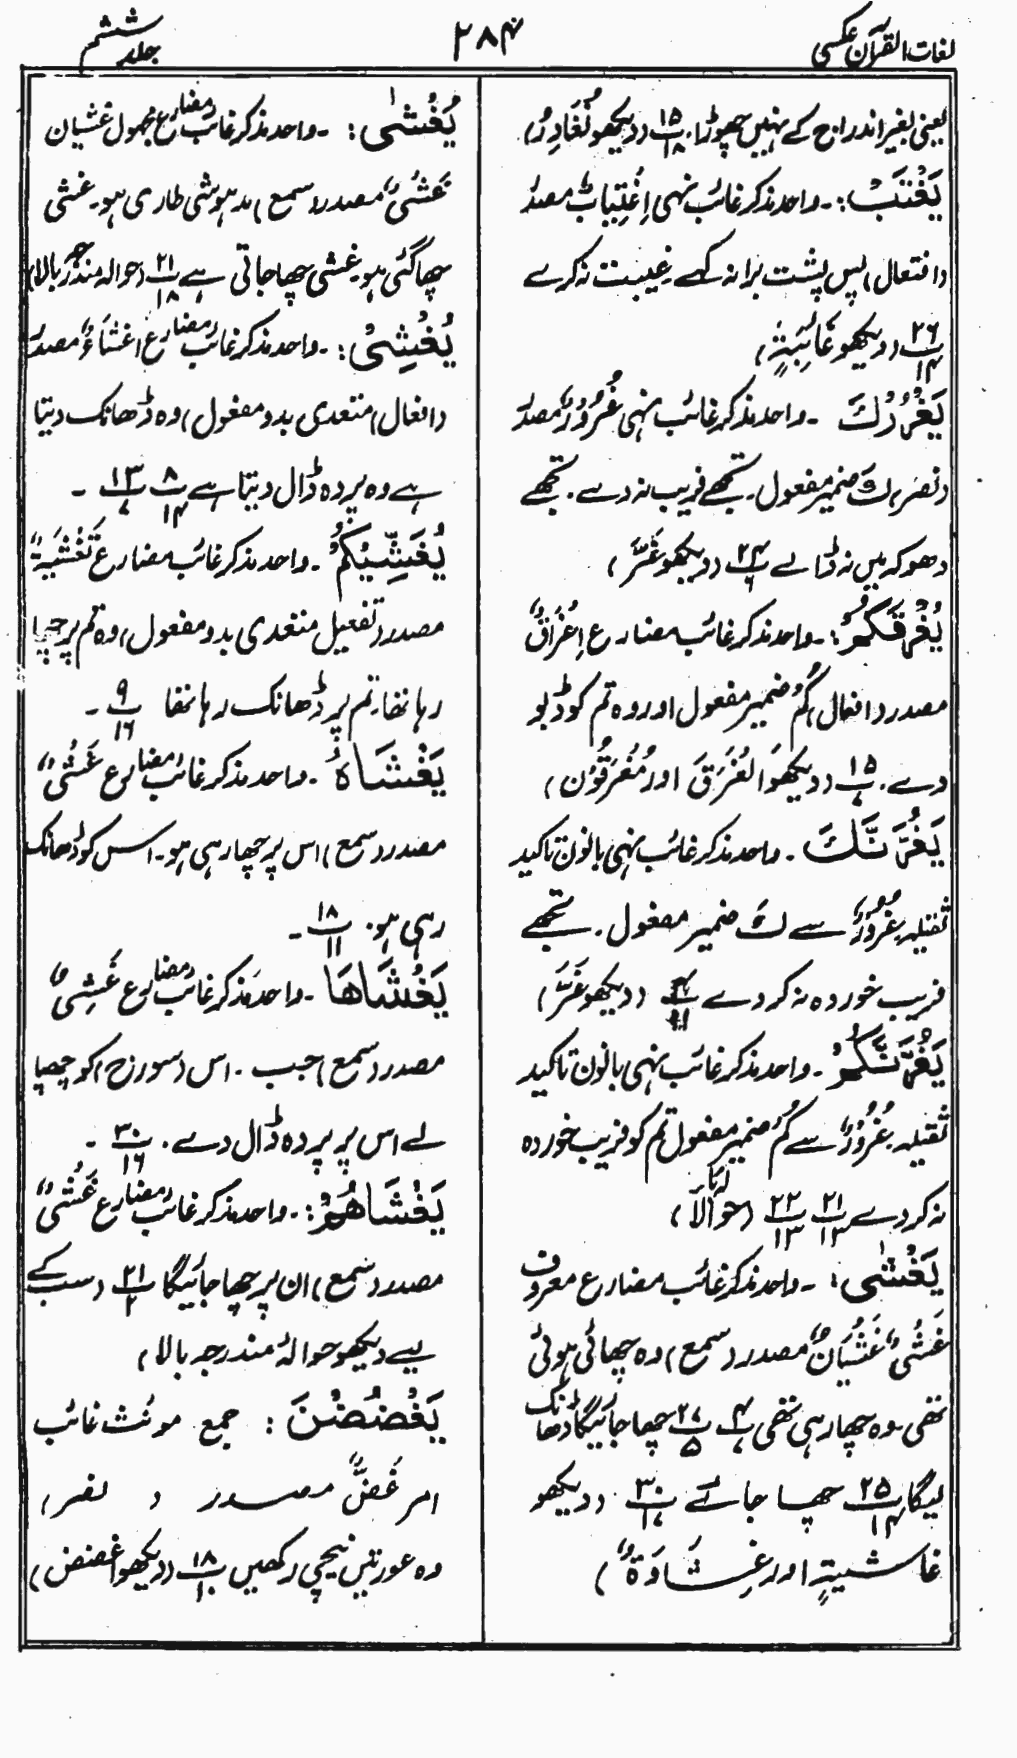 لغات القرآن عکسی
۲۸۴
جلد ششم
یعنی بغیر اندراج کے نہیں چھوڑا. ۱۵/۱۸ (دیکھو نُغَادِرُ)
یَغْتَبْ :۔ واحد مذکر غائب نہی اِغْتِیَابٌ مصدر
(افتعال) پس پشت برا نہ کہے غیبت نہ کرے
۲۶/۱۴ (دیکھو غَائِبَۃٍ)
یَغْرُرْکَ ۔ واحد مذکر غائب نہی غُرُوْرٌ مصدر
(نصر) کَ ضمیر مفعول ۔ تجھے فریب نہ دے . تجھے
دھوکہ میں نہ ڈالے ۲۴/۶ (دیکھو غَرَّ)
یُغْرِقَکُمْ :۔ واحد مذکر غائب مضارع اِغْرَاقٌ
مصدر (افعال) کُمْ ضمیر مفعول اور وہ تم کو ڈبو
دے . ۱۵/۷ (دیکھو الغَرَقَ اور مُغْرَقُوْن)
یَغُرَّنَّکَ ۔ واحد مذکر غائب نہی بانون تاکید
ثقیلہ غُرُوْرٌ سے کَ ضمیر مفعول . تجھے
فریب خوردہ نہ کر دے (دیکھو غَرَّ)
یَغُرَّنَّکُمْ ۔ واحد مذکر غائب نہی بانون تاکید
ثقیلہ غُرُوْرٌ سے کُمْ ضمیر مفعول تم کو فریب خوردہ
نہ کر دے ۲۱/۱۳ ۲۲/۱۳ (حوالا)
یَغْشٰی : ۔ واحد مذکر غائب مضارع معروف
غَشْیٌ غَشْیَانٌ مصدر (سمع) وہ چھائی ہوئی
تھی ۔ وہ چھا رہی تھی ۴/۷ ۲۷/۵ چھا جائیگا ڈھانک
لیگا ۲۵/۱۴ چھا جائے ۳۰/۱۷ (دیکھو
غاشیۃٍ اور غِشَاوَۃٌ)
یُغْشٰی : ۔ واحد مذکر غائب مضارع مجہول غشیان
غَشْیٌ مصدر (سمع) مدہوشی طاری ہو ۔ غشی
چھا گئی ہو ۔ غشی چھا جاتی ہے ۲۱/۱۸ (حوالہ مندرجہ بالا)
یُغْشِیْ : ۔ واحد مذکر غائب مضارع اغْشَاءٌ مصدر
(افعال) متعدی بدو مفعول) وہ ڈھانک دیتا
ہے وہ پردہ ڈال دیتا ہے ۸/۱۴ ۱۳/۷ ۔
یُغَشِّیْکُمْ ۔ واحد مذکر غائب مضارع تَغْشِیَۃٌ
مصدر (تفعیل متعدی بدو مفعول) وہ تم پر چھا
رہا تھا ۔ تم پر ڈھانک رہا تھا ۹/۱۶ ۔
یَغْشَاہُ ۔ واحد مذکر غائب مضارع غَشْیٌ
مصدر (سمع) اس پر چھا رہی ہو ۔ اس کو ڈھانک
رہی ہو . ۱۸/۱۱ ۔
یَغْشَاھَا ۔ واحد مذکر غائب مضارع غَشْیٌ
مصدر (سمع) جب ۔ اس (سورج) کو چھپا
لے اس پر پردہ ڈال دے . ۳۰/۱۶ ۔
یَغْشَاھُمْ :۔ واحد مذکر غائب مضارع غَشْیٌ
مصدر (سمع) ان پر چھا جائیگا ۲۱/۲ (سب کے
لیے دیکھو حوالۂ مندرجہ بالا)
یَغْضُضْنَ : جمع مونث غائب
امر غَضٌّ مصدر ( نصر )
وہ عورتیں نیچی رکھیں ۱۸/۱۰ (دیکھو اغضض)